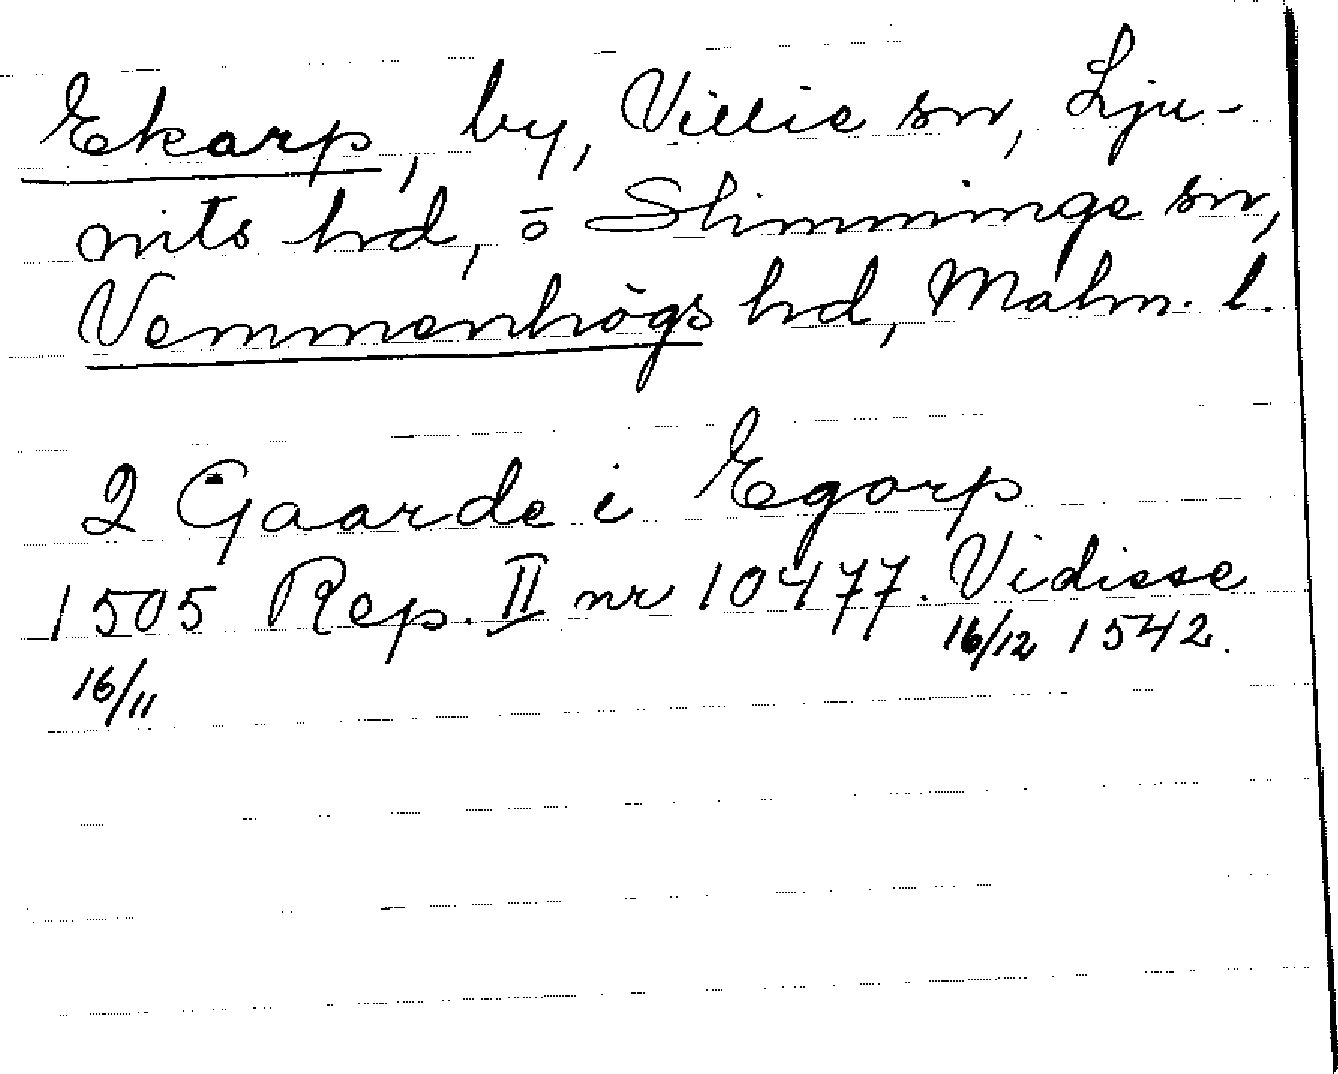 Ekarp, by, Villie sn, Lju-
nits hd, ō Slimminge sn,
Vemmenhögs hd, Malm. l.
2 Gaarde i Egorp
1505 Rep. II nr 10477. Vidisse
16/12 1542.
16/11